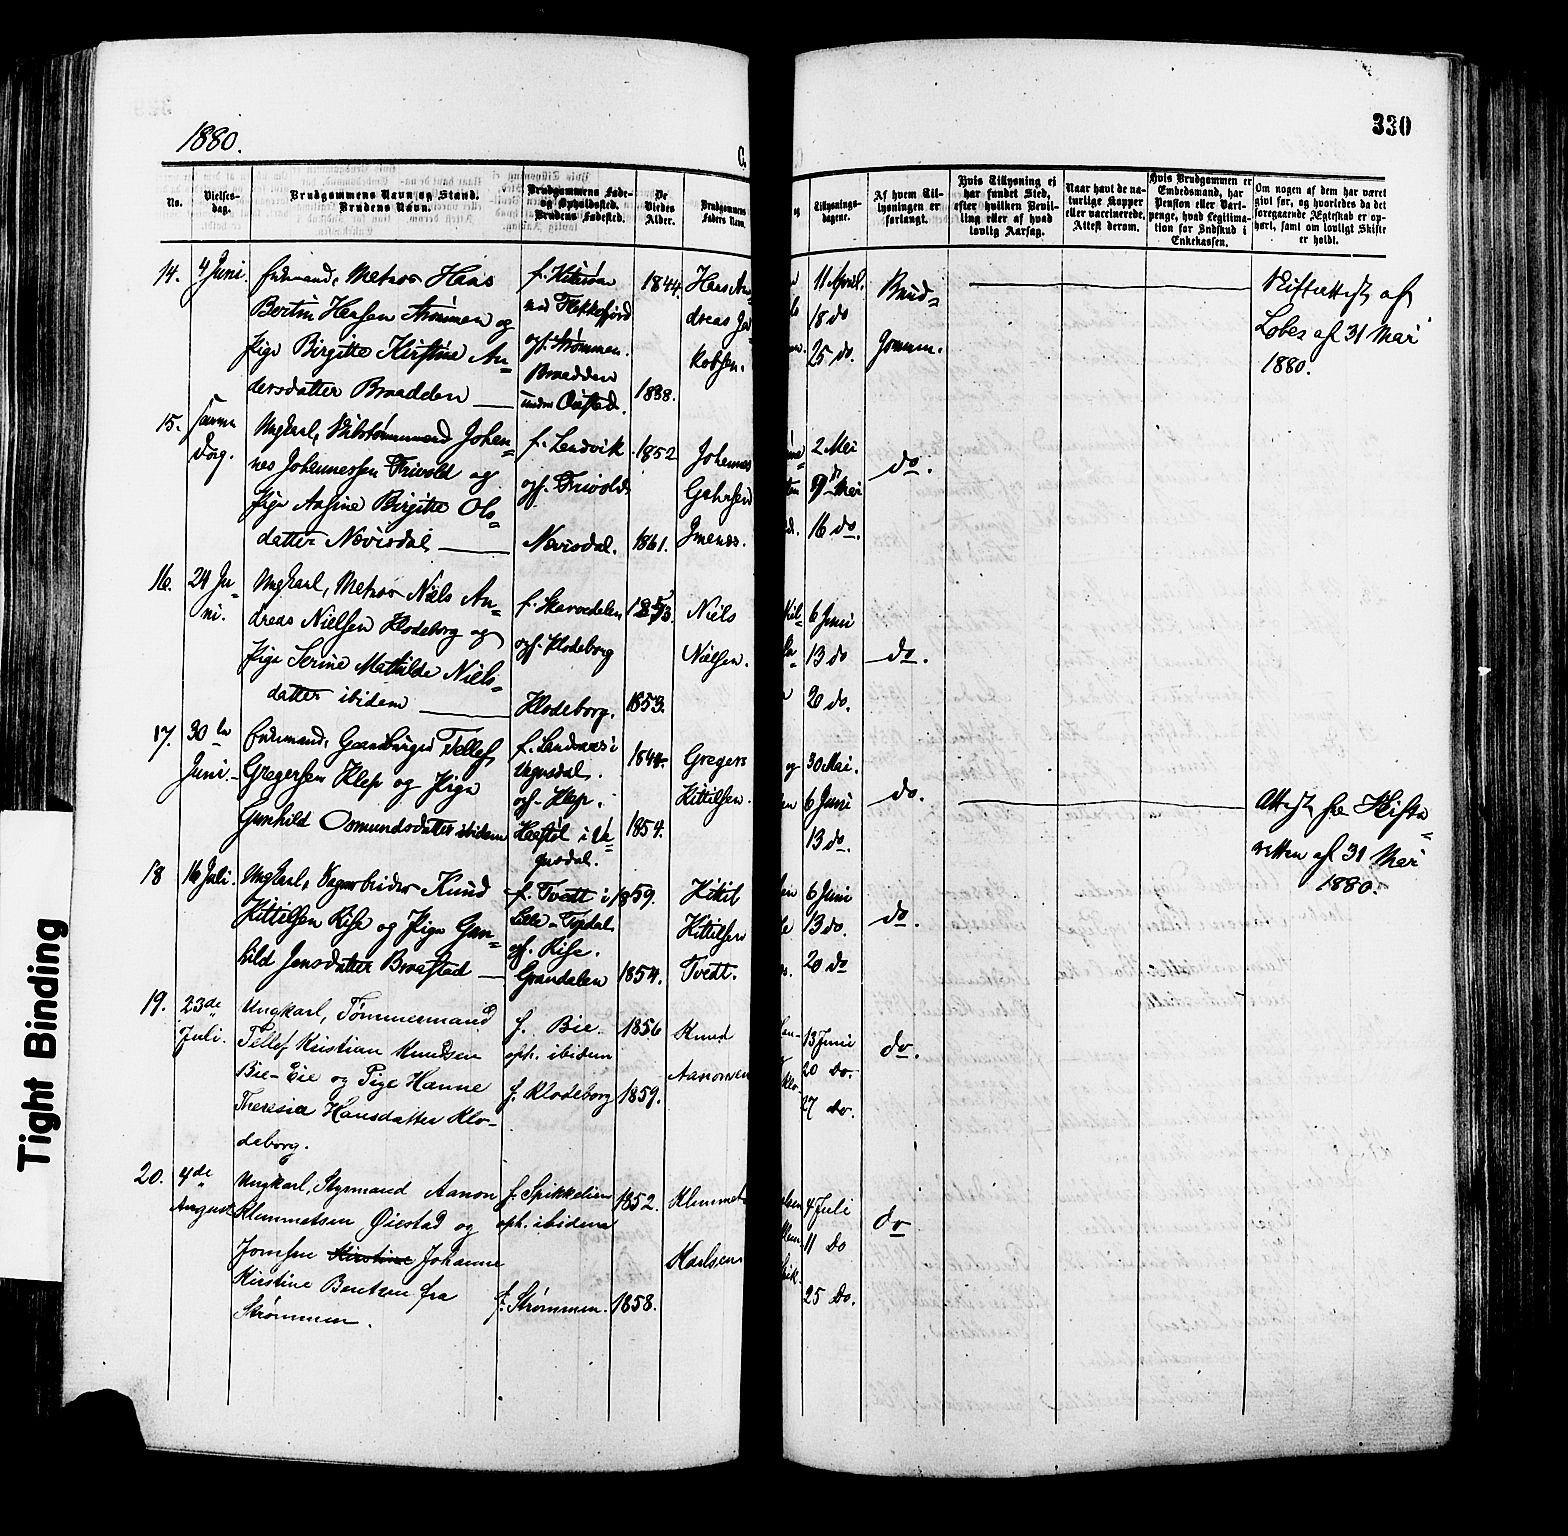 1880.
330
No.
Vielses-
dag.
Brudgommens Navn og Stand.
Brudens Navn.
Brudgommens Føde-
og Opholdssted.
Brudens Fødested.
De
Viedes
Alder.
Brudgommens
Faders Navn.
og
Tillysnings-
dagene.
Af hvem Til-
lysningen er
forlangt.
Hvis Tillysning ei
har fundet Sted,
efter hvilken Bevil-
ling eller af hvad
lovlig Aarsag.
Naar havt de na-
turlige Kopper
eller vaccinerede.
Attest derom.
Hvis Brudgommen er
Embedsmand, har
Pension eller Vart-
penge, hvad Legitima-
tion for Indskud i
Enkekassen.
Om nogen af dem har været
givt før, og hvorledes da det
foregaaende Ægteskab er op-
hørt, samt om lovligt Skifte
er holdt.
14. 4 Juni.
Enkemand, Matros Hans
Bertin Hansen Strømmen og
Pige Birgitte Kirstine An-
dersdatter Braadden
ved Flekkefjord
oph. Strømmen.
Braadden
under Øiestad.
1844.
1838.
Hans An-
dreas Ja-
kobsen.
11 April.
18 do
25 do.
Brud-
Gommen.
Skifteattest af
Lobes af 31 Mai
1880.
15. samme
Dag.
Ungkarl, Johan-
nes Johannessen Trivold og
Pige Aasine Birgitte Ols-
datter Nævisdal
f. Landvik
oph. Trivold
Nævisdal.
1852
1861.
Johannes
Jmenæs.
2 Mai
9de Mai
16 do.
do.
16. 24 Ju-
ni.
Ungkarl, Matros Niels An-
dreas Nielsen Klodeborg og
Pige Serine Mathilde Niels-
datter ibidem
f. Skarvedalen
oph. Klodeborg
Klodeborg.
1853.
1853.
Niels
Nielsen.
6 Juni
13 do
20 do.
do.
17. 30te
Juni.
Enkemand, Gaardbruger Tellef
Gregersen Klep og Pige
Gunhild Osmundsdatter ibidem
f. Landaas i
Vegusdal.
oph. Klep.
Hæstøl i Ve-
gusdal.
1844
1854.
Gregers
Kittilsen.
og
30 Mai.
6 Juni
13 do.
do.
Attest fra Skifte-
retten af 31 Mai
1880.
18 16 Juli.
Ungkarl, Dagarbeider Knud
Kittilsen Rise og Pige Gun-
hild Jensdatter Braastad
f. Tvedt i
Lille-Topdal
oph. Rise.
Grandalen
1859.
1854.
Kittil
Kittilsen
Tvedt.
6 Juni
13 do.
20 do
do.
19. 23de
Juli.
Ungkarl, Tømmermand
Tellef Kristian Knudsen
Bie-Eie og Pige Hanne
Theresia Hansdatter Klo-
deborg.
f. Bie.
oph. ibidem
f. Klodeborg
1856
1859.
Knud
Aanonsen
13 Juni
20 do.
27 do.
do.
20. 4de
August
Ungkarl, Styrmand Aanon
Klemmetsen Øiestad og
Jomfru Kirstine Johanne
Kirstine Bentsen fra
Strømmen.
f. Spikkelien
oph. ibidem
f. Strømmen.
1852.
1858.
Klemmet
Karlsen
4 Juli
11 do
25 do.
do
Tight Binding